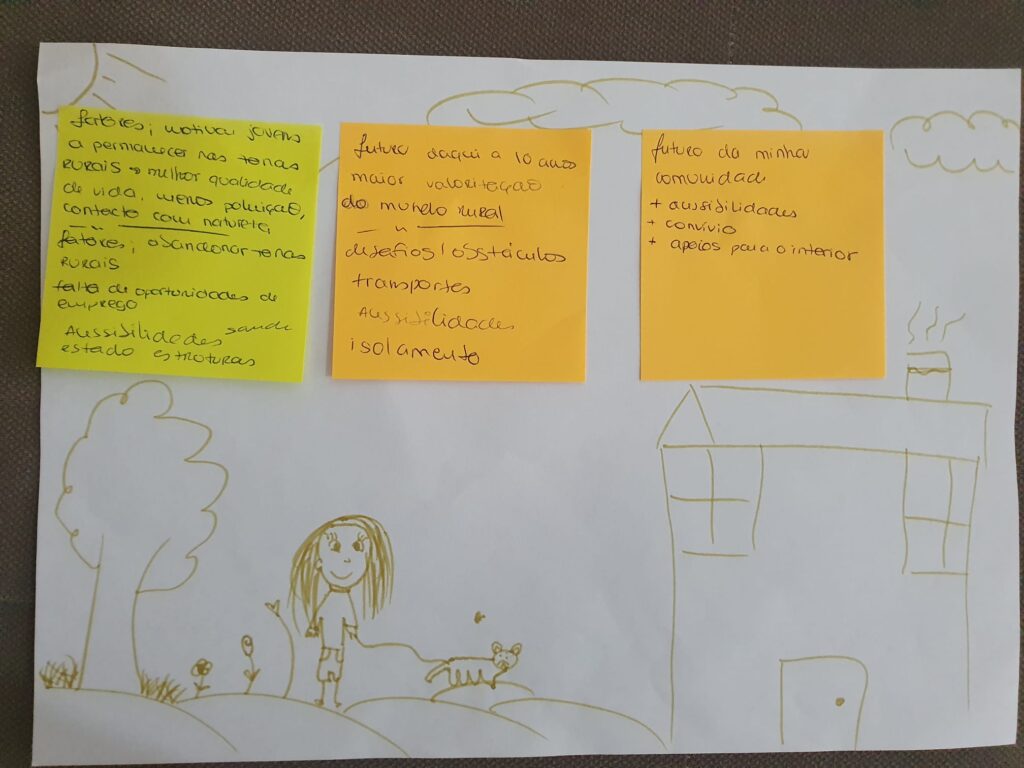 fatores; motivar jovens
a permanecer nas terras
RURAIS → melhor qualidade
de vida, menos poluição,
contacto com natureza
fatores; abandonar terras
RURAIS
falta de oportunidades de
emprego
Aussibilidades saude
estado estruturas
futuro daqui a 10 anos
maior valorização
do mundo rural
desafios/obstáculos
transportes
Aussibilidades
isolamento
futuro da minha
comunidade
+ aussibilidades
+ convívio
+ apoios para o interior